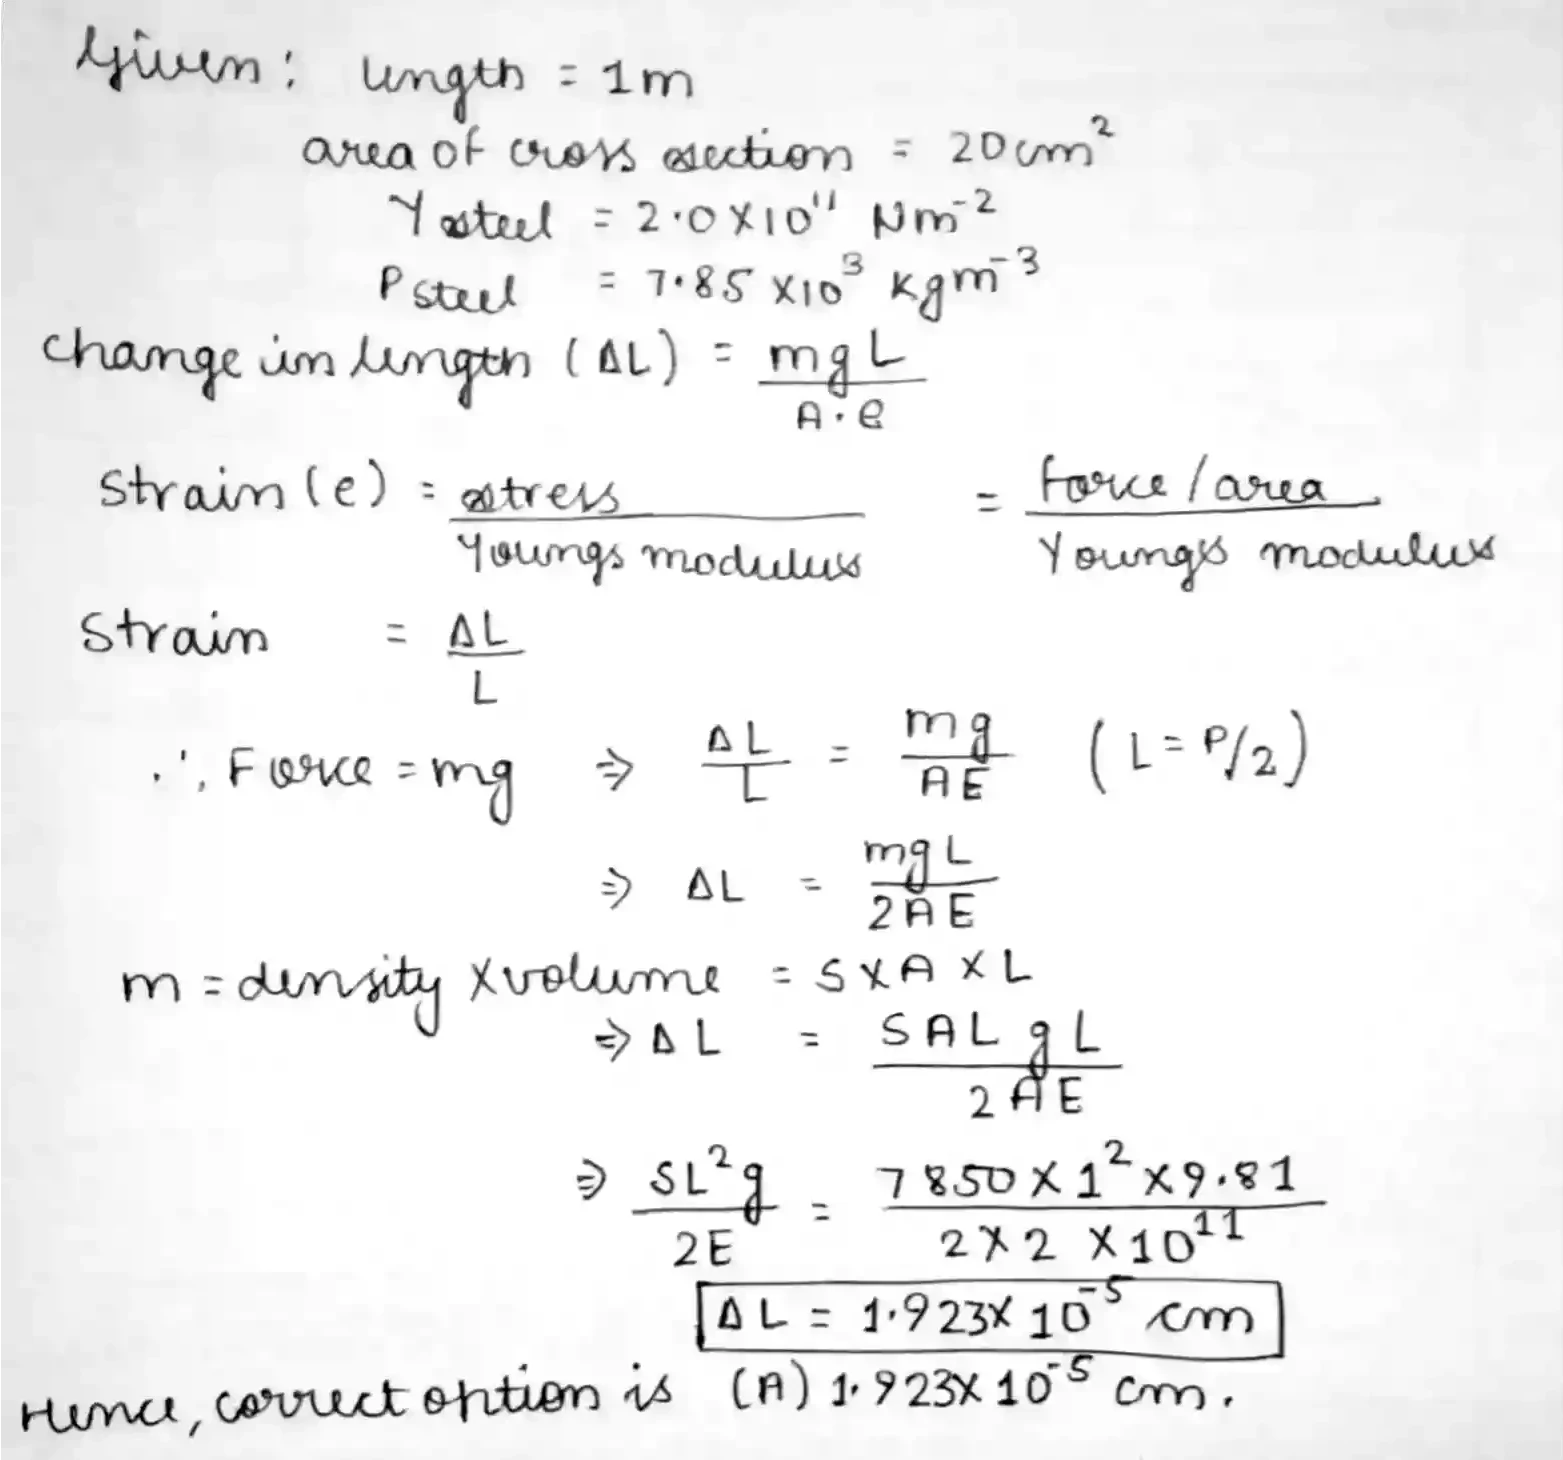 Given: length = 1m
area of cross section = 20cm²
Y steel = 2.0X10¹¹ Nm⁻²
P steel = 7.85 X10³ Kgm⁻³
change in length (ΔL) = mgL / A.e
Strain (e) = stress / Youngs modulus = force/area / Youngs modulus
Strain = ΔL / L
∴ Force = mg ⇒ ΔL / L = mg / AE (L = P/2)
⇒ ΔL = mgL / 2AE
m = density X volume = S X A X L
⇒ ΔL = SALgL / 2AE
⇒ SL²g / 2E = 7850 X 1² X 9.81 / 2X2 X10¹¹
ΔL = 1.923X 10⁻⁵ cm
Hence, correct option is (A) 1.923X 10⁻⁵ cm.